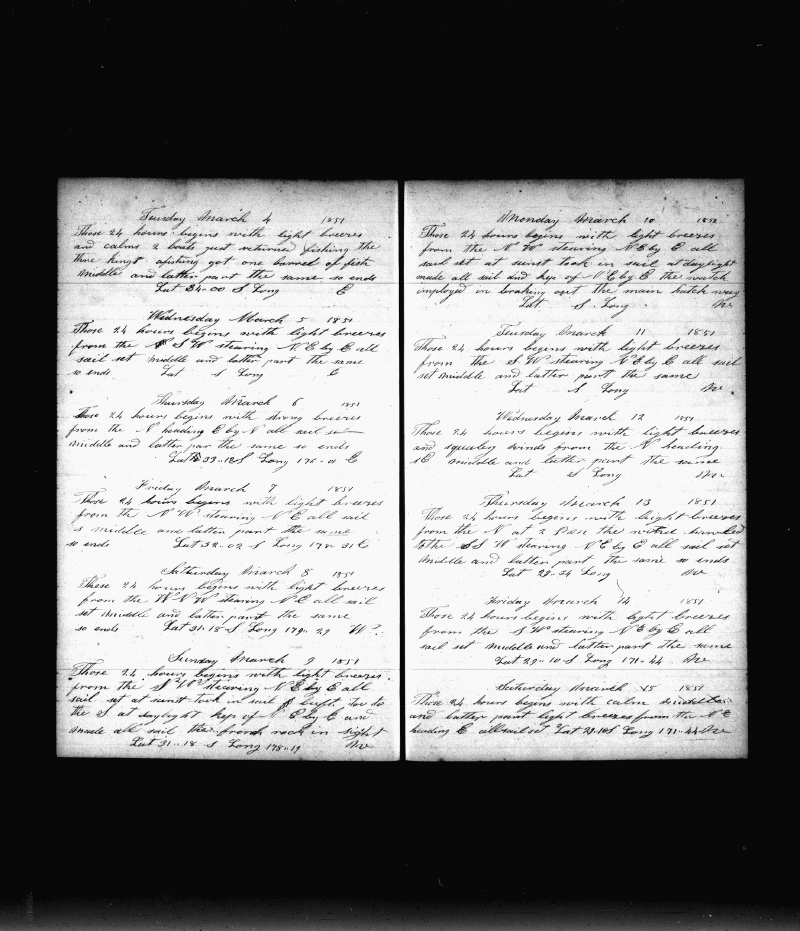 Tuesday March 4 1851
Those 24 hours begins with light breezes
and calms 2 boats just returned fishing the
three kings afishing got one barrel of fish
middle and latter part the same so ends
Lat 34-00 S Long E
Wednesday March 5 1851
Those 24 hours begins with light breezes
from the S W stearing N E by E all
sail set middle and latter part the same
so ends Lat S Long E
Thursday March 6 1851
Those 24 hours begins with strong breezes
from the N heading E by N all sail set
middle and latter par the same so ends
Lat 33-18 S Long 176-01 E
Friday March 7 1851
Those 24 hours begins with light breezes
from the N W stearing N E all sail
s middle and latter part the same
so ends Lat 32-02 S Long 178-31 E
Saturday March 8 1851
These 24 hours begins with light breezes
from the W N W stearing N E all sail
set middle and latter part the same
so ends Lat 31-18 S Long 179-29 W
Sunday March 9 1851
Those 24 hours begins with light breezes
from the S W stearing N E by E all
sail set at sunst took in sail luft too to
the S at daylight kep of N E by E and
made all sail the french rock in sight
Lat 31-18 S Long 178-19 W
Monday March 10 1851
Those 24 hours begins with light breezes
from the N W stearing N E by E all
sail set at sunst took in sail at daylight
made all sail and kep of N E by E the watch
imployed in braking out the main hatch way
Lat S Long W
Tuesday March 11 1851
Those 24 hours begins with light breezes
from the S W stearing N E by E all sail
set middle and latter part the same
Lat S Long W
Wednesday March 12 1851
Those 24 hours begins with light breezes
and squaley winds from the N heading
E middle and latter part the same
Lat S Long W
Thursday March 13 1851
Those 24 hours begins with light breezes
from the N at 2 P M the wind
to the S S W stearing N E by E all sail set
middle and latter part the same so ends
Lat 29-24 Long W
Friday March 14 1851
Those 24 hours begins with light breezes
from the S W stearing N E by E all
sail set middle and latter part the same
Lat 29-10 S Long 171-44 W
Saturday March 15 1851
Those 24 hours begins with calm middle
and latter part light breezes from the N E
heading E all sail set Lat 29-10 S Long 171-44 W